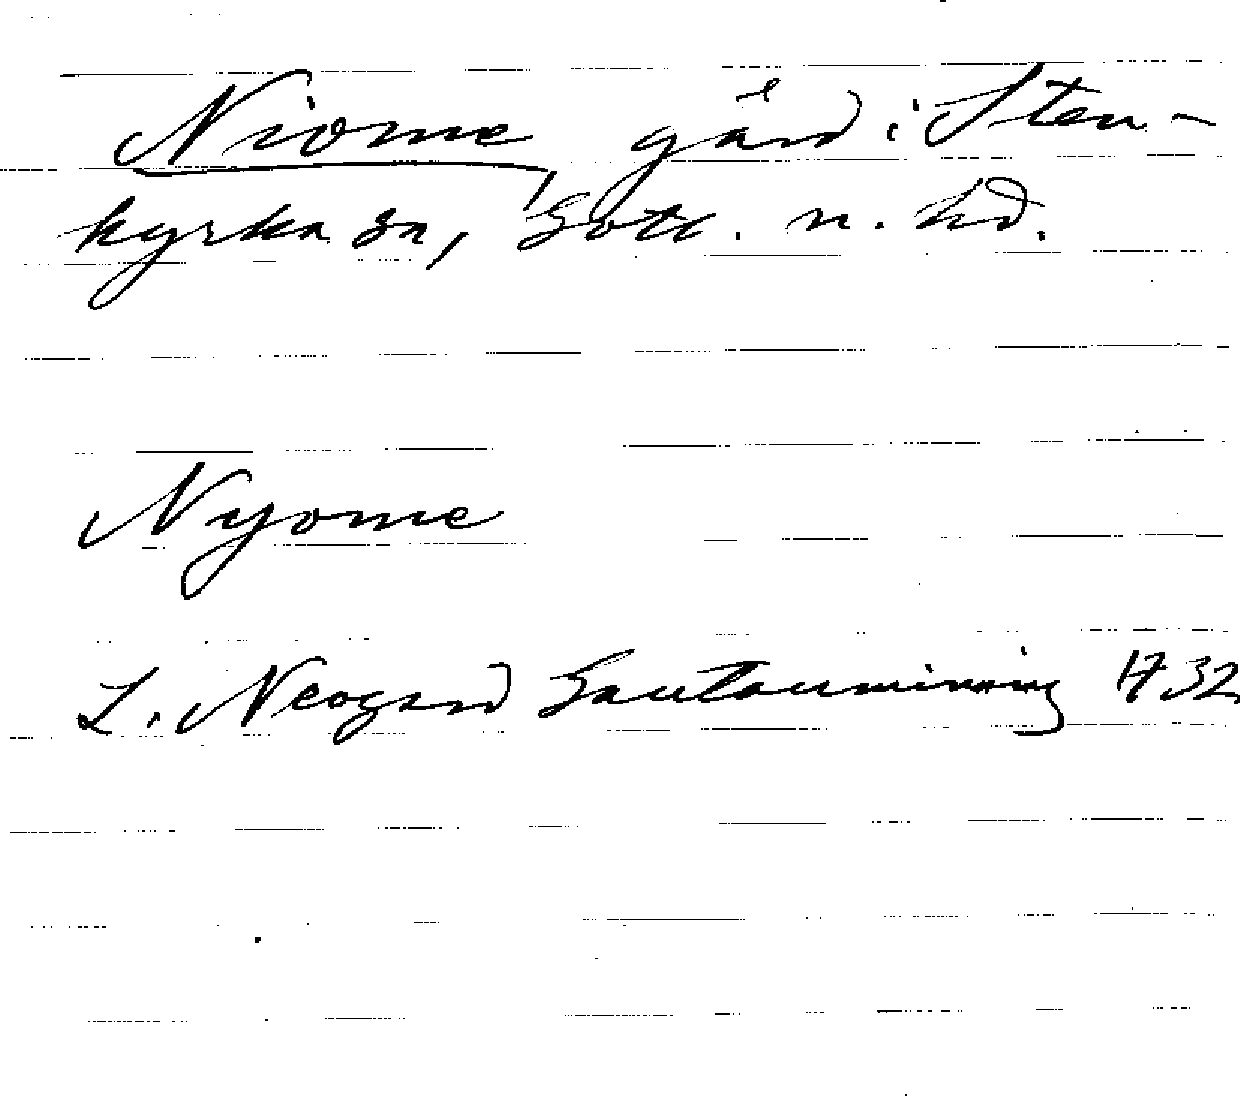 Niome, gård i Sten-
kyrka sn, Gotl. n. hd.
Nyome
L. Neogard Gautauminning 1732